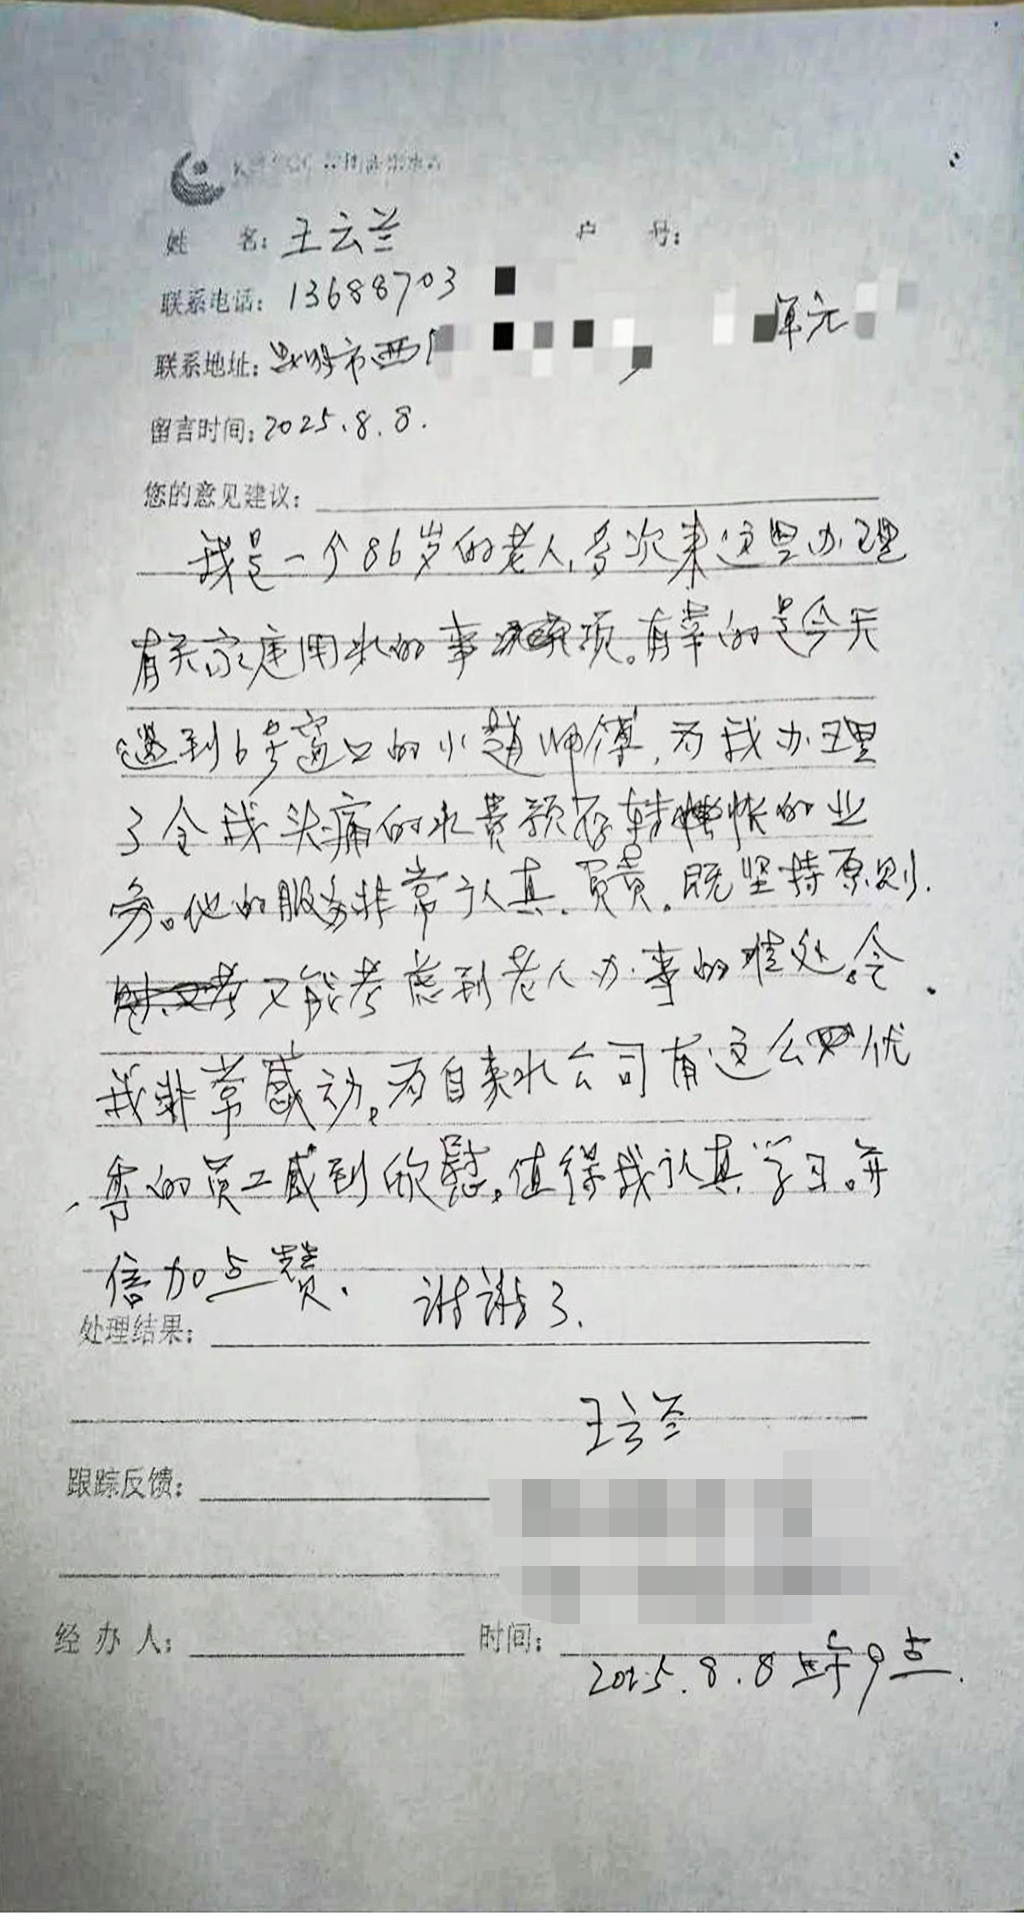 姓 名：王云兰 户 号：
联系电话：13688703
联系地址：昆明市西 单元
留言时间：2025.8.8.
您的意见建议：
我是一个86岁的老人，多次来这里办理
有关家庭用水的事项。有幸的是今天
遇到6号窗口的小赵师傅，为我办理
了令我头痛的水费预存转帐的业
务。他的服务非常认真、负责。既坚持原则．
又能考虑到老人办事的难处。令
我非常感动。为自来水公司有这么优
秀的员工感到欣慰。值得我认真学习。并
倍加点赞． 谢谢了．
处理结果：
王云兰
跟踪反馈：
经 办 人： 时间：
2025.8.8 上午9点．